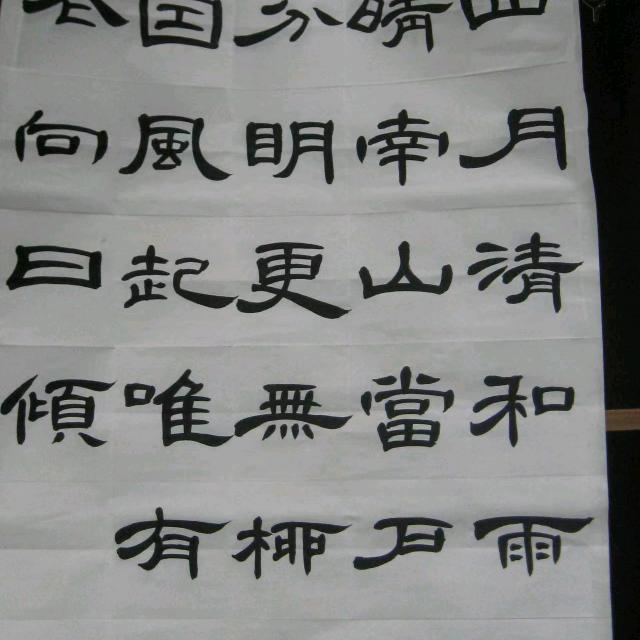 四月清和雨
晴南山當戶
分明更無柳
因風起唯有
花向日傾